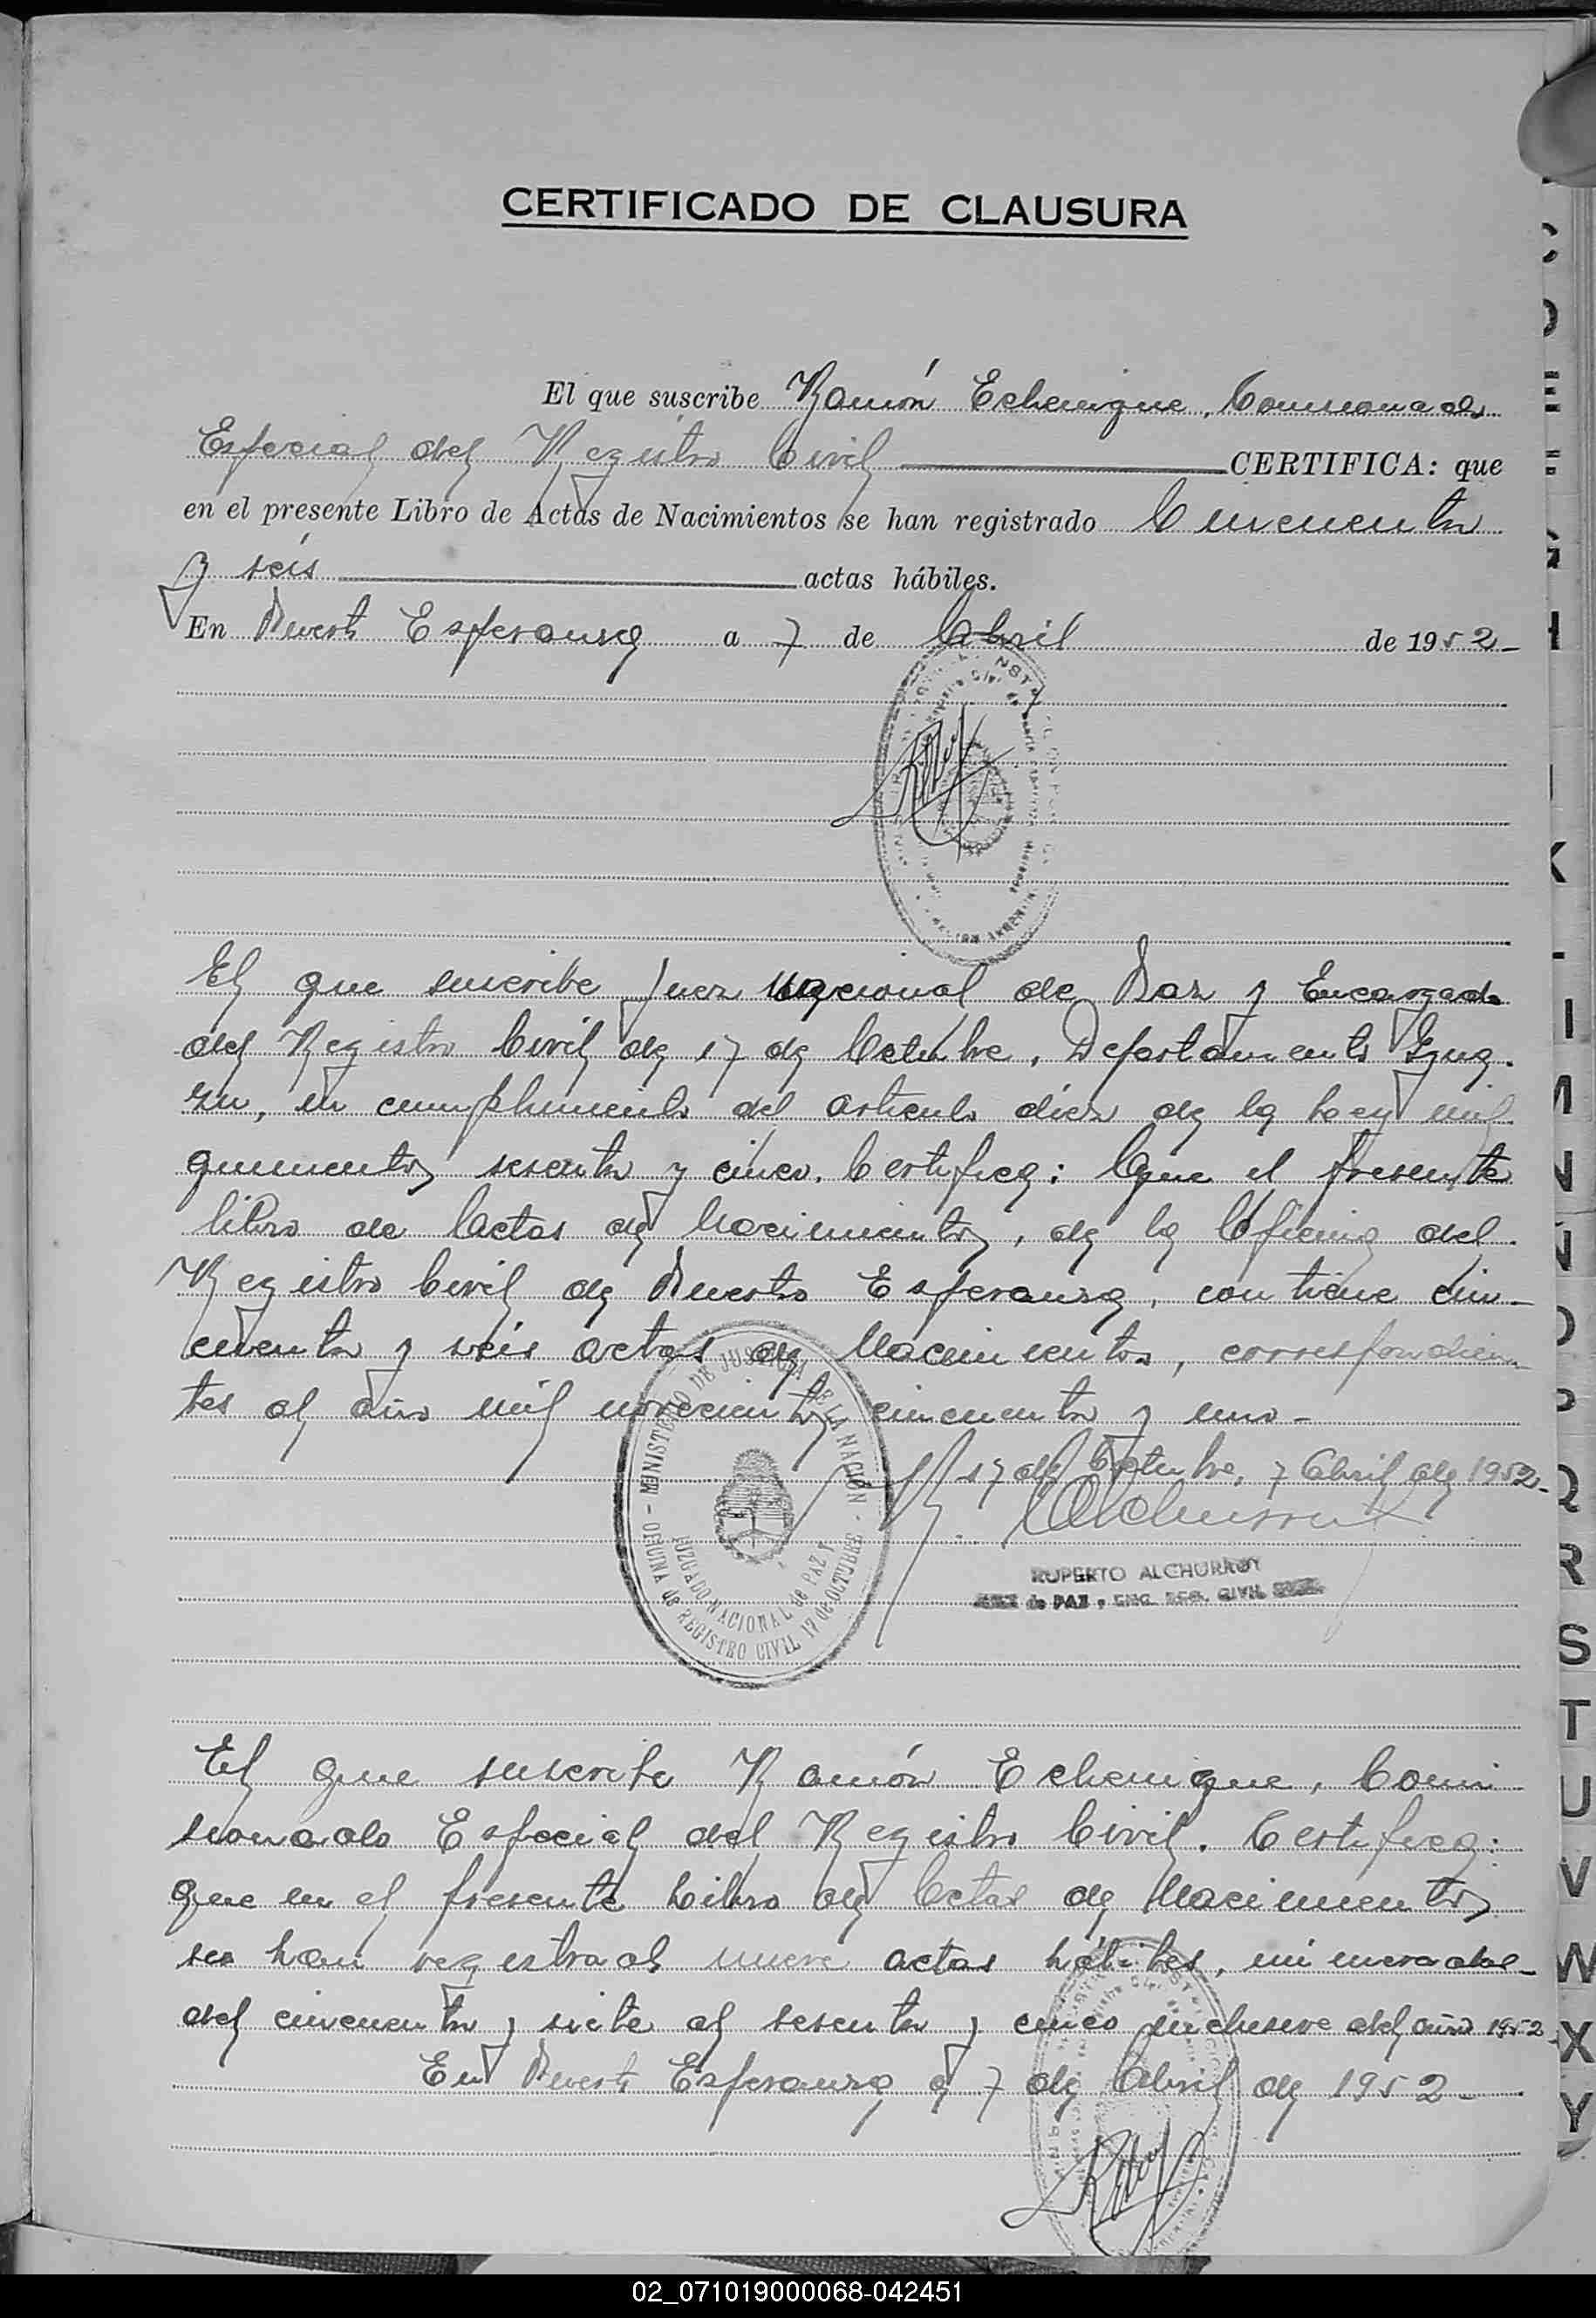 CERTIFICADO DE CLAUSURA
El que suscribe Ramón Echenique, Comisionado
Especial del Registro Civil CERTIFICA: que
en el presente Libro de Actas de Nacimientos se han registrado Cincuenta
y seis actas hábiles.
En Puerto Esperanza a 7 de Abril de 1952-
El que suscribe Juez Nacional de Paz y Encargado
del Registro Civil de 17 de Octubre, Departamento Igua-
zu, en cumplimiento del articulo diez de la Ley mil
quinientos sesenta y cinco. Certifica: Que el presente
libro de Actas de Nacimientos, de la Oficina del
Registro Civil de Puerto Esperanza, contiene cin-
cuenta y seis actas de Nacimientos, correspondien-
tes al año mil novecientos cincuenta y uno-
17 de Octubre, 7 Abril de 1952-
MINISTERIO DE JUSTICIA DE LA NACION
JUZGADO NACIONAL de PAZ
OFICINA de REGISTRO CIVIL 17 de OCTUBRE
RUPERTO ALCHURROY
JUEZ de PAZ y ENC. REG. CIVIL
El que suscribe Ramón Echenique, Comi
sionado Especial del Registro Civil. Certifica:
que en el presente Libro de Actas de Nacimientos
se han registrado nueve actas hábiles, numeradas-
del cincuenta y siete al sesenta y cinco inclusive del año 1952
En Puerto Esperanza a 7 de Abril de 1952-
C
D
E
F
G
H
I
K
L
M
N
Ñ
O
P
Q
R
S
T
U
V
W
X
Y
02_071019000068-042451